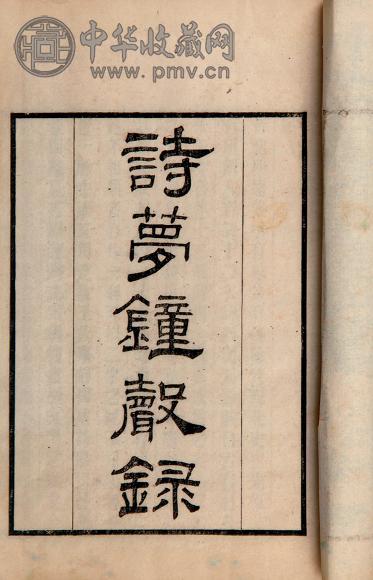 中华收藏网
www.pmv.cn
詩夢鐘聲録